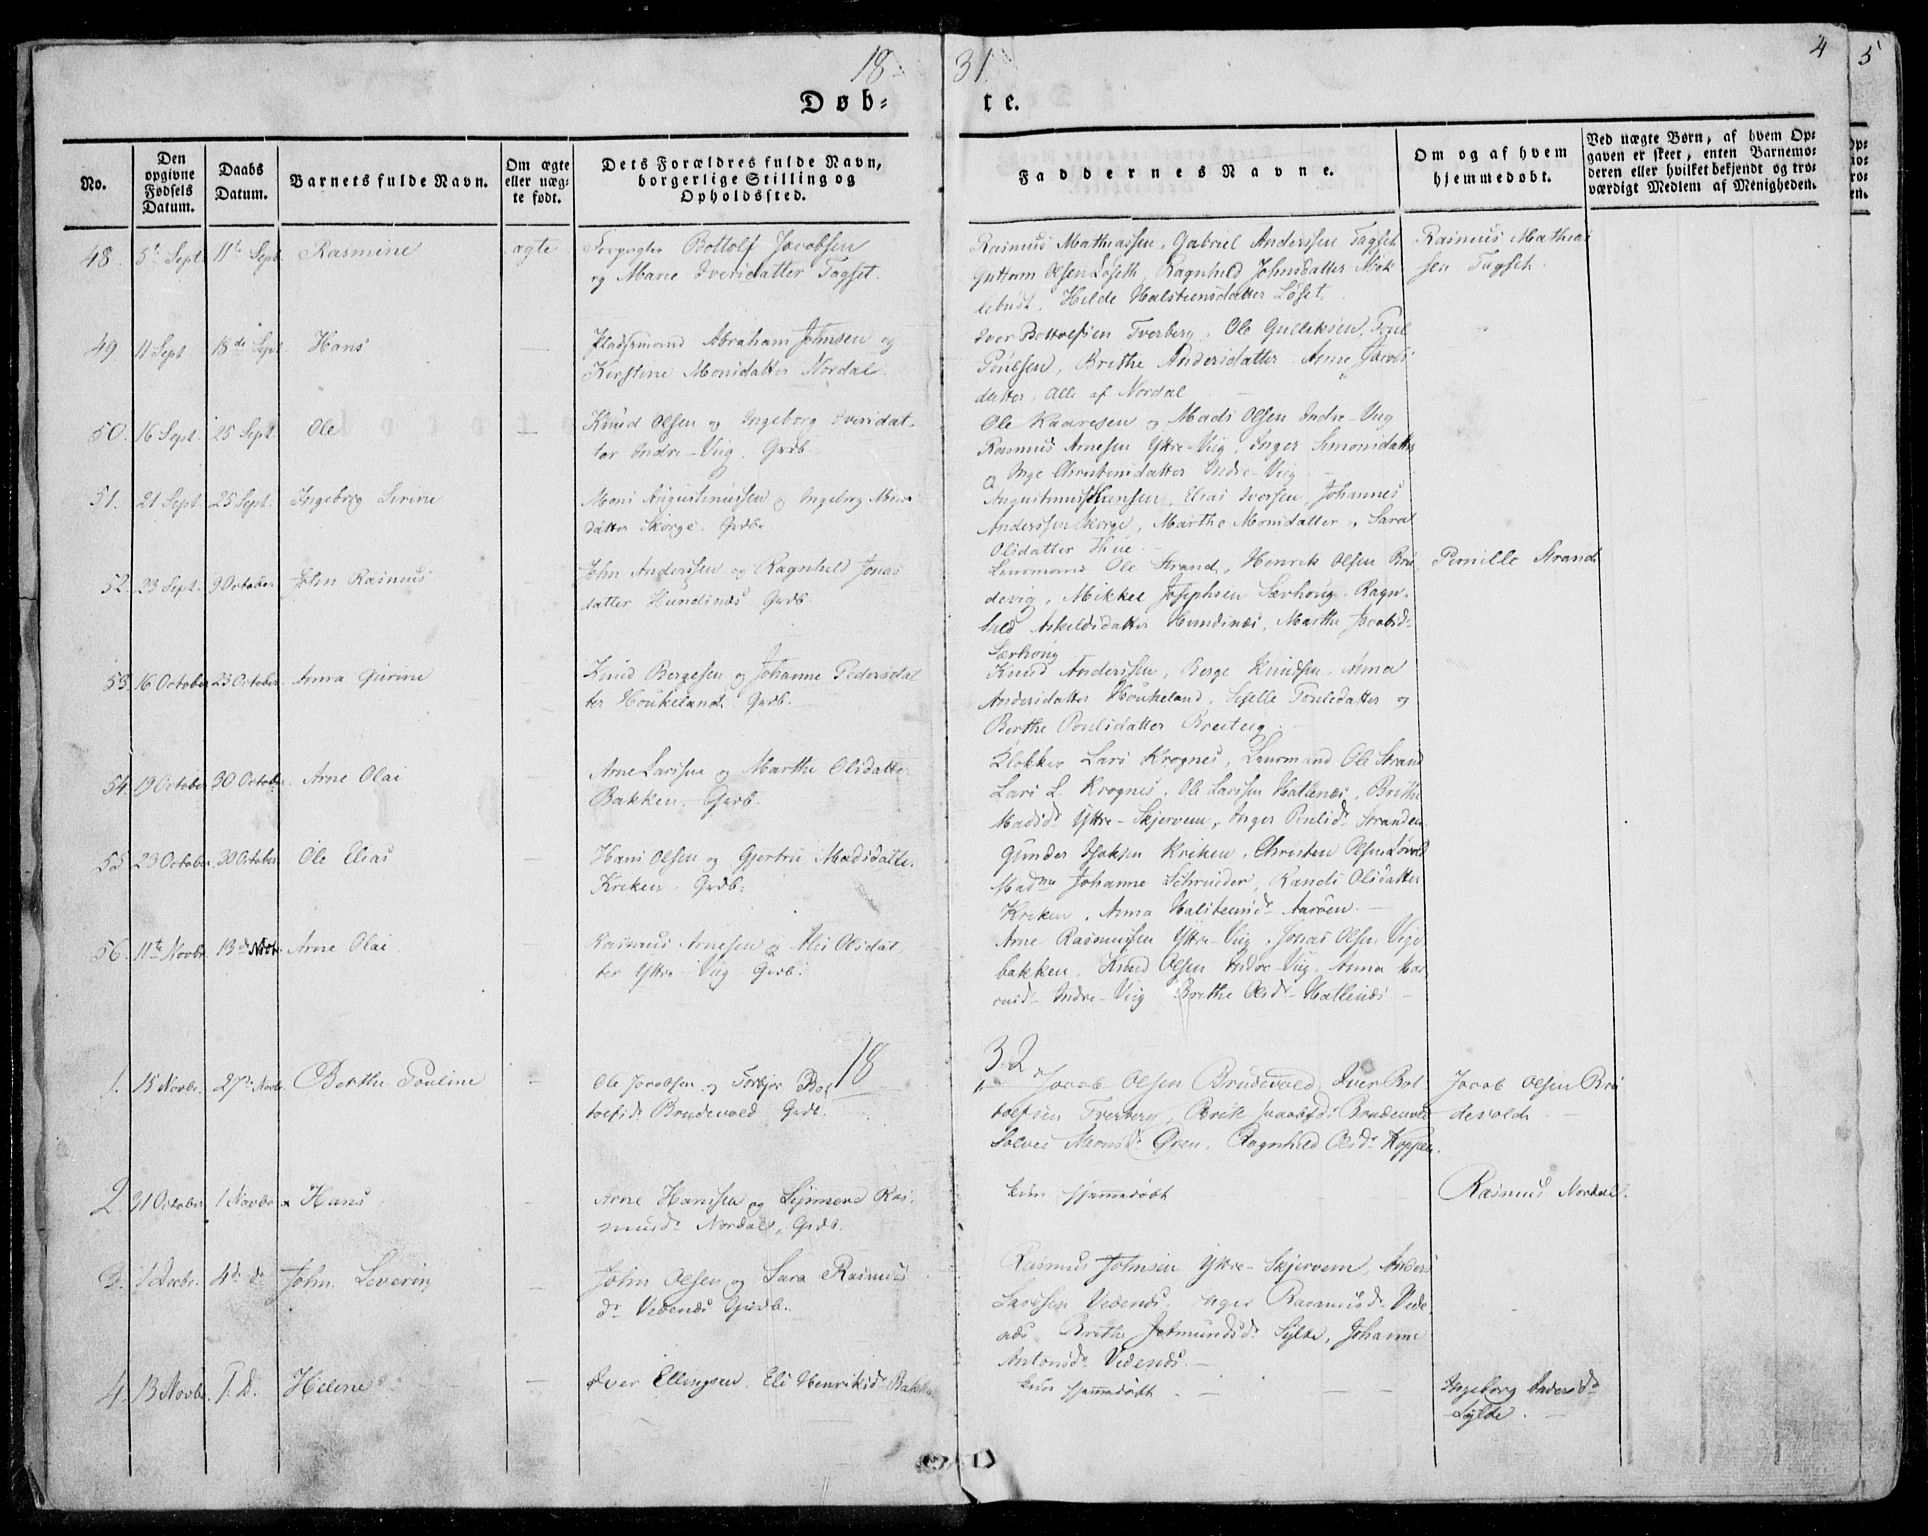 18 31. 4 5
Døb= te.
No.
Den opgivne Fødsels Datum.
Daabs Datum.
Barnets fulde Navn.
Om ægte eller uæg- te født.
Dets Forældres fulde Navn, borgerlige Stilling og Opholdssted.
Faddernes Navne.
Om og af hvem hjemmedøbt.
Ved uægte Børn, af hvem Op- gaven er skeet, enten Barnemo- deren eller hvilket bekjendt og tro- værdigt Medlem af Menigheden.
48. 5te Sept. 11te Sept. Rasmine ægte Bottolf Jacobsen
og Marie Iversdatter Tagset.
Rasmus Mathiassen, Gabriel Anderssen Tagset
Guttorm Olsen Løseth, Ragnhild Johnsdatter Møk
lebust, Hilde Halsteinsdatter Løset.
Rasmus Mathias
sen Tagseth.
49. 11 Sept. 18de Sept. Hans — Pladsmand Abraham Johnsen og
Kirstine Monsdatter Nordal.
Iver Bottolfsen Tverberg, Ole Gulliksen, Poul
Poulsen, Brithe Andersdatter, Anne Jacobs
datter, alle af Nordal
50. 16 Sept. 25 Sept. Ole — Knud Olsen og Ingeborg Iversdat-
ter Indre-Viig. Grdb.
Ole Kaaresen og Mads Olsen Indre-Viig
Rasmus Arnesen Yttre-Viig, Inger Simonsdatter
og Inge Christensdatter Indre-Viig
51. 21 Sept. 25 Sept. Ingeborg Sirine — Mons Augustinussen og Ingeborg Mons
datter Skorge. Grdb.
Augustinus Hansen, Elias Iversen, Johannes
Anderssen Skorge, Marthe Monsdatter, Sara
Olsdatter Thue
52. 23 Sept. 9 October John Rasmus — John Anderssen og Ragnhild Jonas
datter Hundsnæs. Grdb.
Leensmand Ole Strand, Henrik Olsen Bru
devig, Mikkel Josephsen Sørhoug, Ragn-
hild Askeldsdatter Hundsnæs, Marthe Jacobsdr
Sørhoug
Pernille Strand
53. 16 October 23 October Anna Gurine — Knud Børgesen og Johanne Pedersdat
ter Houkeland. Grdb.
Knud Anderssen, Børge Knudsen, Anna
Andersdatter Houkeland, Sselle Poulsdatter og
Berthe Poulsdatter Breiteig.
54. 19 October 30 October Arne Olai — Arne Larssen og Marthe Olsdatter
Bakken. Grdb.
Klokker Lars Krognes, Leensmand Ole Strand
Lars L. Krognes, Ole Larssen Hatlenæs, Brithe
Madsdr Yttre-Skjervem, Inger Poulsdr Stranden
55. 23 October 30 October Ole Elias — Hans Olsen og Gjertru Madsdatter
Kreken. Grdb.
Gunder Isaksen Kreken, Christen Olsen Løvold
Madme Johanne Schreuder, Randi Olsdatter
Kreken, Anna Halsteinsdr Aarøen.
56. 11te Novbr. 13de Novbr. Arne Olai — Rasmus Arnesen og Alis Olsdat
ter Yttre-Viig Grdb.
Arne Rasmussen Yttre-Viig, Jonas Olsen Vige
bakken, Knud Olsen Indre-Viig, Anna
Indre-Viig Brithe Olsdr Hatlenæs
18 32
1. 15 Novbr. 27de Novbr. Berthe Pouline — Ole Jacobsen og Torbjør Bot
tolfsdr Brudevold Grdb.
Jacob Olsen Brudevold, Iver Bot-
tolfsen Tverberg, Brudevold
Solvei Monsdr Øren, Ragnhild Olsdr Koppen.
Jacob Olsen Bru
devold
2. 31 October 1 Novbr. Hans — Arne Hanssen og Lismend Ras-
musdr Nordal, Grdb.
kun hjemmedøbt
Rasmus Nordal.
3. 1 Decbr. 4de do John Severin — John Olsen og Sara Rasmus
dr Vedenæs Grdb.
Rasmus Johnsen Yttre-Skjervem, Anders
Larssen Vedenæs, Inger Rasmusdr Vede
næs Brithe Jetmundsdr Sylte, Johanne
Antonsdr Vedenæs.
4. 13 Novbr. S. D. Helene — Iver Ellingsen, Eli Henriksdr Bakken
kun hjemmedøbt
Ingeborg Andersdr
Sylte.